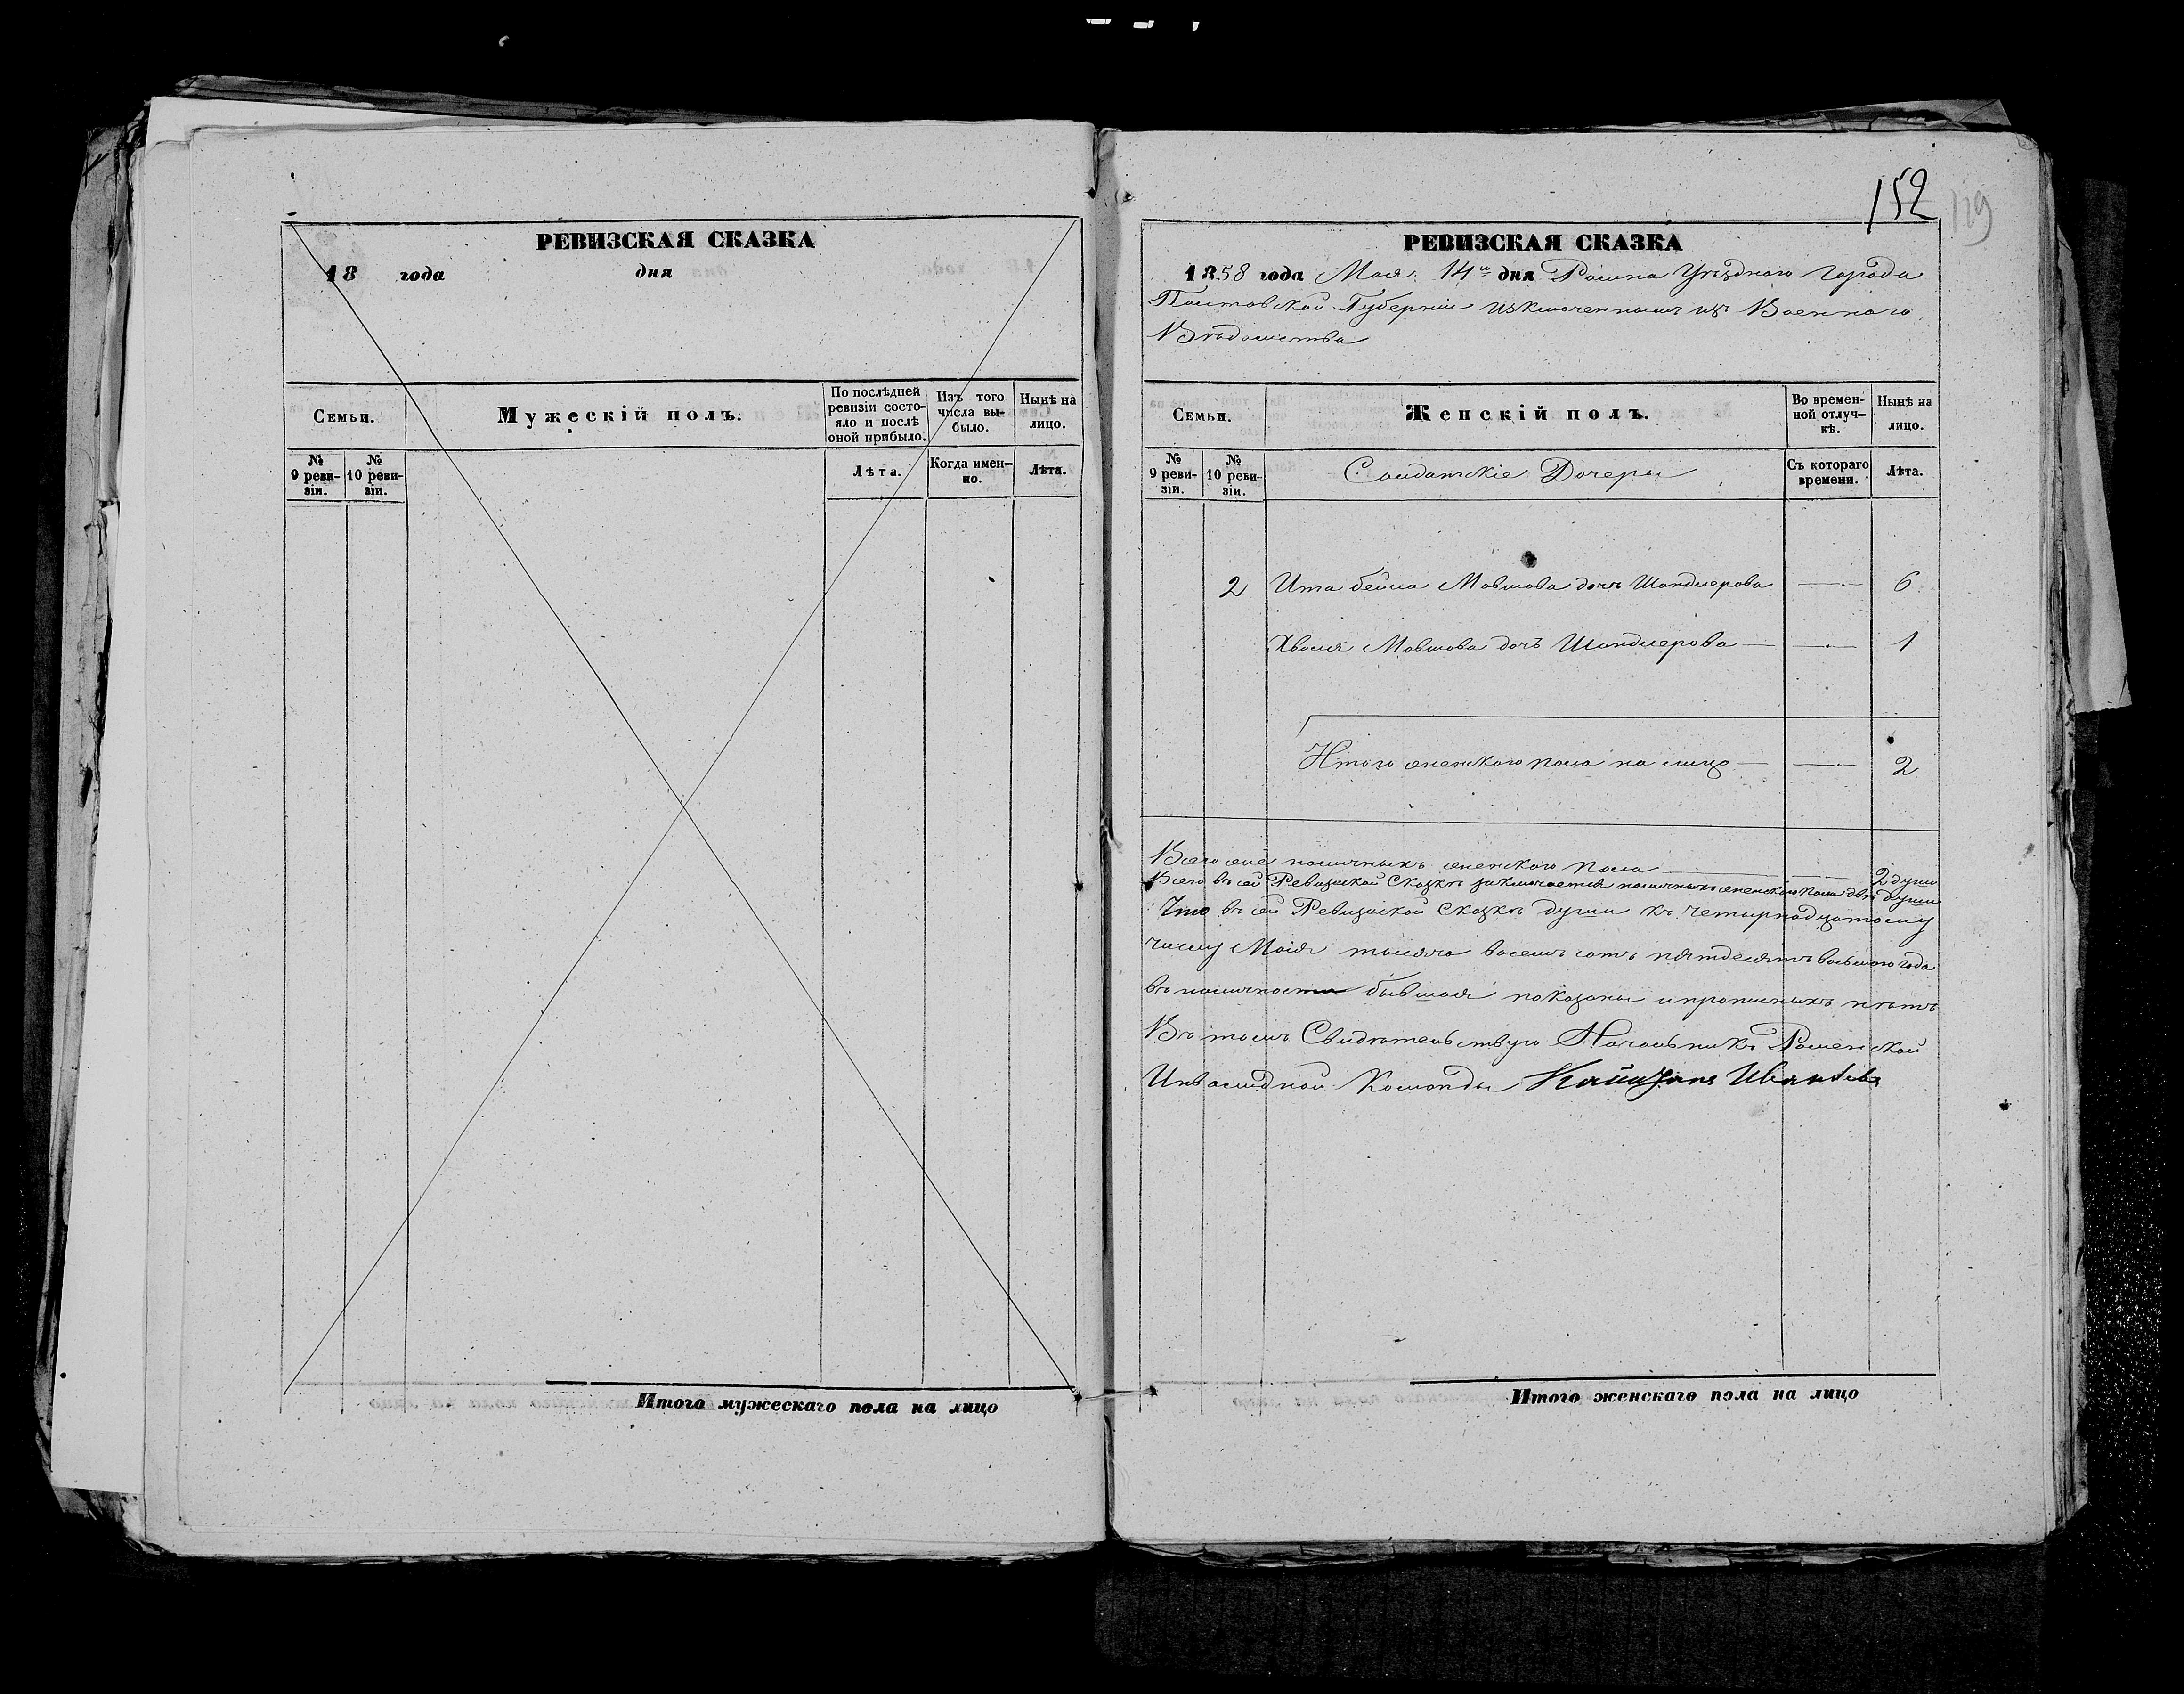 РЕВИЗСКАЯ СКАЗКА
18 года дня
Семьи.
Мужескій полъ.
По послѣдней ревизіи состояло и послѣ оной прибыло.
Изъ того числа выбыло.
Нынѣ на лицо.
№ 9 ревизіи.
№ 10 ревизіи.
Лѣта.
Когда именно.
Лѣта.
Итого мужескаго пола на лицо
152
119
РЕВИЗСКАЯ СКАЗКА
1858 года Мая 14го дня Ромна Уѣзднаго Города
Полтавской Губерніи изключеннымъ изъ Военнаго
Вѣдомства
Семьи.
Женскій полъ.
Во временной отлучкѣ.
Нынѣ на лицо.
№ 9 ревизіи.
№ 10 ревизіи.
Солдатскіе Дочеры
Съ котораго времени.
Лѣта.
2 Ита бейла Мовшова дочь Шандлерова — 6
Хволя Мовшова дочь Шандлерова — — 1
Итого женского пола на лицо — — 2
Всего оне наличныхъ женского пола 2 души
Всего въ сей Ревизской Сказкѣ заключается наличныхъ женского пола двѣ души
Что въ сей Ревизской Сказкѣ души къ четырнадцатому
числу Маія тысяча восемь сотъ пятдесятъ восьмого года
въ наличности бывшая показаны и прописныхъ нѣтъ
Въ томъ Свидѣтельствую Начальникъ Роменской
Инвалидной Команды Капитанъ
Итого женскаго пола на лицо